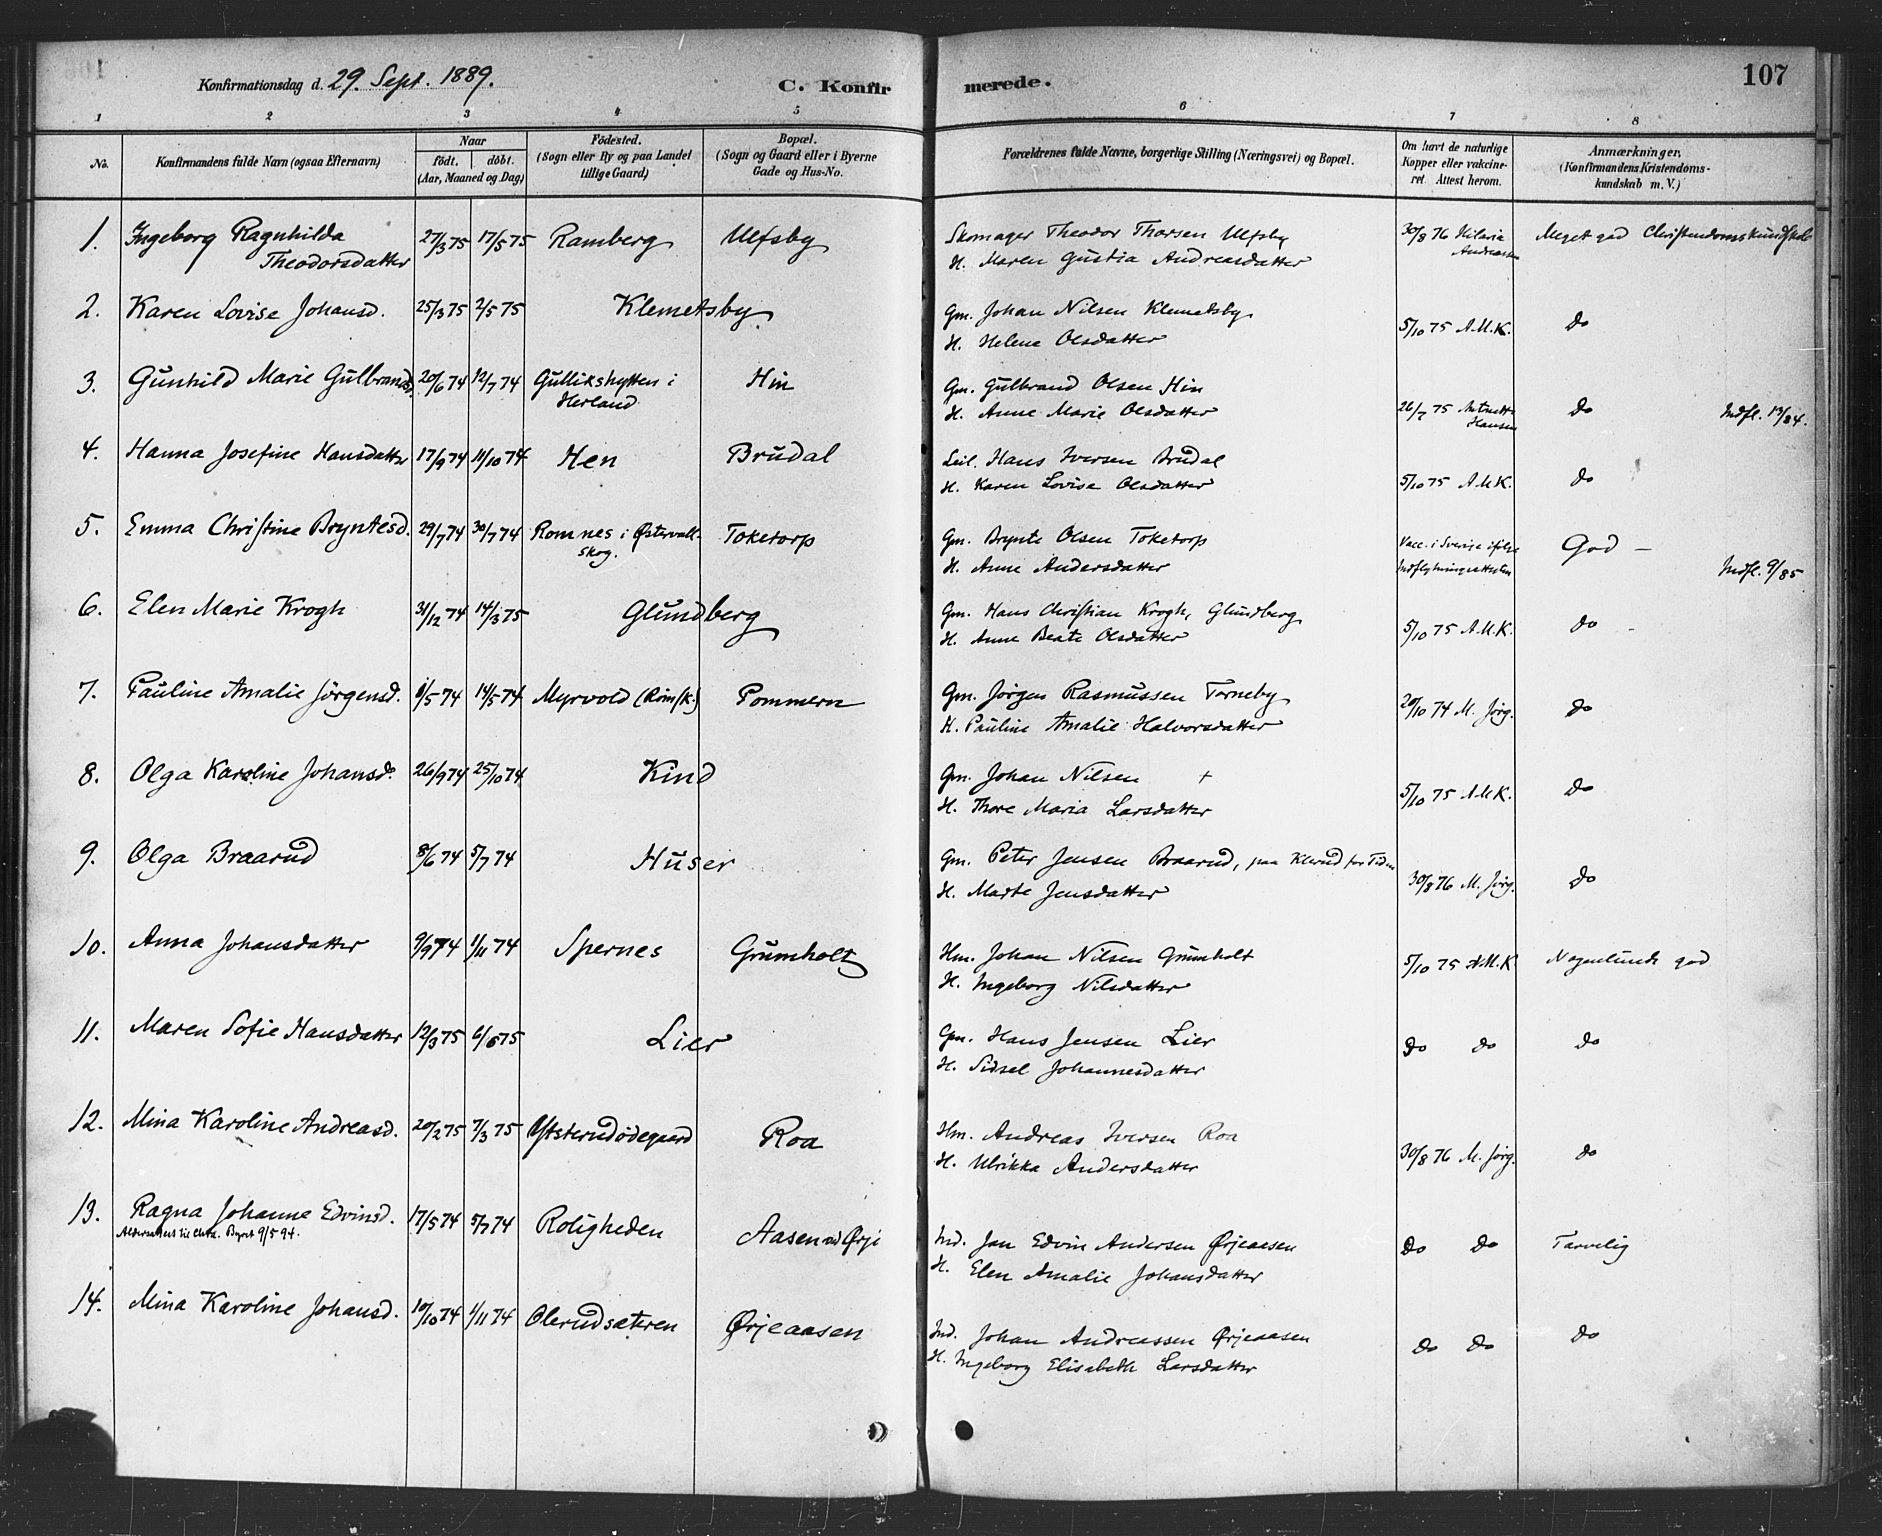 Konfirmationsdag d. 29. Sept. 1889.
C. Konfirmerede.
107
1 2 3 4 5 6 7 8
No.
Konfirmandens fulde Navn (ogsaa Efternavn)
Naar
født. døbt.
(Aar, Maaned og Dag)
Fødested.
(Sogn eller By og paa Landet
tillige Gaard)
Bopæl.
(Sogn og Gaard eller i Byerne
Gade og Hus-No.
Forældrenes fulde Navne, borgerlige Stilling (Næringsvei) og Bopæl.
Om havt de naturlige
Kopper eller vakcine-
ret. Attest herom.
Anmærkninger.
(Konfirmandens Kristendoms-
kundskab m. V.)
1. Ingeborg Ragnhilda 27/3 75 17/5 75 Ramberg Ulfsby Skomager Theodor Thorsen Ulfsby 30/8 76 Hilaria Meget god Christendomskundskab
Theodorsdatter H. Maren Gustia Andreasdatter Andreassen
2. Karen Lovise Johansd. 25/3 75 2/5 75 Klemetsby Gm. Johan Nilsen Klemetsby 5/10 75 A.M.K. do
H. Helene Olsdatter
3. Gunhild Marie Gulbrandsd. 20/6 74 12/7 74 Gullikshytten i Hin Gm. Gulbrand Olsen Hin
Herland H. Anne Marie Olsdatter 26/7 75 Hansen do Indfl. 13/84.
4. Hanna Josefine Hansdatter 17/9 74 11/10 74 Hen Brudal Leil. Hans Iversen Brudal
H. Karen Lovise Olsdatter 5/10 75 A.M.K. do
5. Emma Christine Bryntesd. 29/7 74 30/7 74 Romnes i Østervall- Toketorp Gm. Brynte Olsen Toketorp Vacc. i Sverige ifølge God –
skog. H. Anne Andersdatter Indflytningsattesten Indfl. 9/85
6. Elen Marie Krogh 31/12 74 14/3 75 Glundberg Gm. Hans Christian Krogh, Glundberg
H. Anne Beate Olsdatter 5/10 75 A.M.K. do –
7. Pauline Amalie Jørgensd. 1/5 74 14/5 74 Myrvold (Römsk.) Pommern Gm. Jørgen Rasmussen Torneby 20/10 74 M. Jørg. do
H. Pauline Amalie Halvorsdatter
8. Olga Karoline Johansd. 26/9 74 25/10 74 Kind Gm. Johan Nilsen +
H. Thore Maria Larsdatter 5/10 75 A.M.K. do
9. Olga Braarud 8/6 74 5/7 74 Huser Gm. Peter Jensen Braarud, paa Klerud for Tiden
H. Marte Jensdatter 30/8 76 M. Jørg. do
10. Anna Johansdatter 9/9 74 1/11 74 Spernes Grumholt Hm. Johan Nilsen Grumholt 5/10 75 A.M.K Nogenlunde god
H. Ingeborg Nilsdatter
11. Maren Sofie Hansdatter 12/3 75 6/6 75 Lier Gm. Hans Jensen Lier do do do
H. Sidsel Johannesdatter
12. Mina Karoline Andreasd. 20/2 75 7/3 75 Ysterudødegaard Roa Hm. Andreas Iversen Roa
H. Ulrikka Andersdatter 30/8 76 M. Jørg. do
13. Ragna Johanne Edvinsd. 17/5 74 5/7 74 Roligheden Aasen ved Ørje Ind. Jan Edvin Andersen Ørjeaasen do do Tarvelig
Aldersattest til Chra. Byret 9/5 94. H. Elen Amalie Johansdatter
14. Mina Karoline Johansd. 10/10 74 1/11 74 Olerudsæteren Ørjeaasen Ind. Johan Andreassen Ørjeaasen do do do
H. Ingeborg Elisabeth Larsdatter